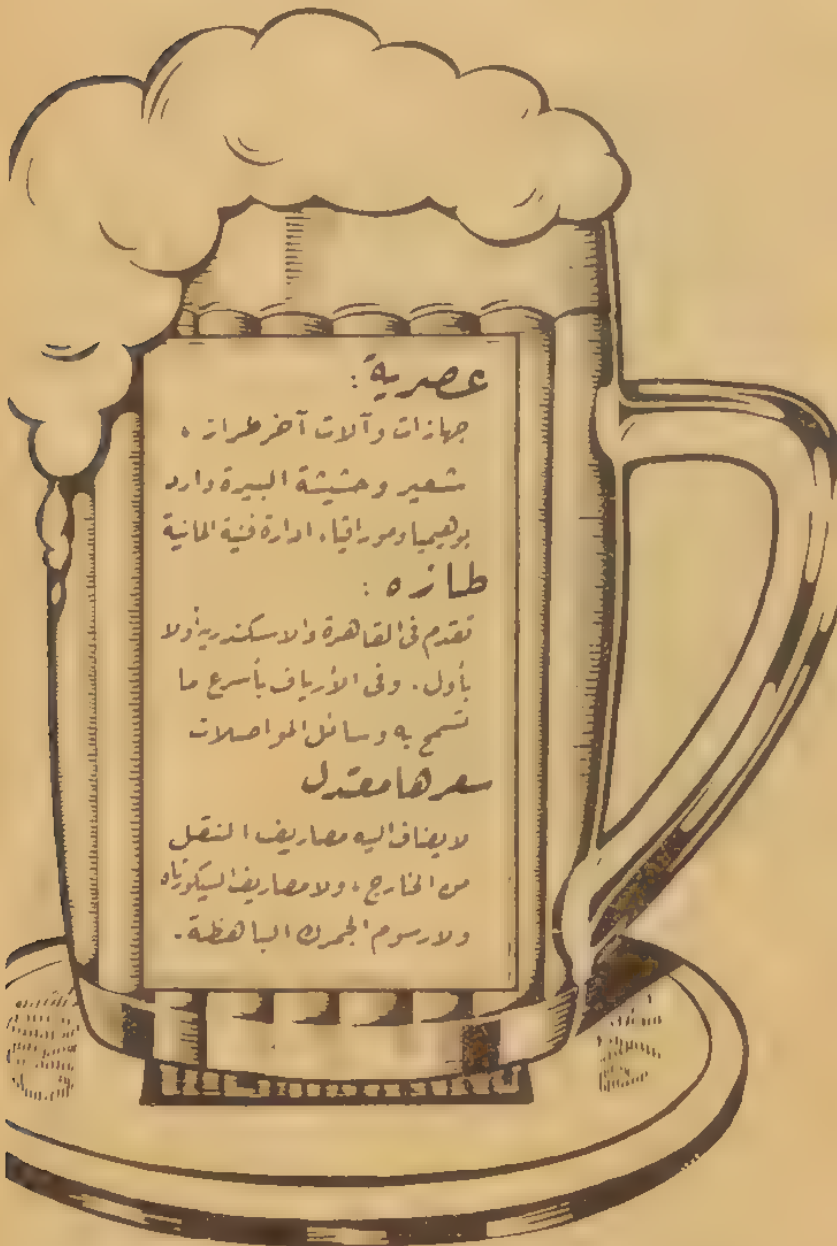 عصرية:
جهازات وآلات آخر طراز،
شعير وحشيشة البيرة وارد
بوهيميا ومورافيا، ادارة فنية المانية
طازه:
تقدم فى القاهرة والاسكندرية أولا
بأول. وفى الأرياف بأسرع ما
تسمح به وسائل المواصلات
سعرها معتدل
لا يضاف اليه مصاريف النقل
من الخارج، ولا مصاريف السيكورتاه
ولا رسوم الجمرك الباهظة.